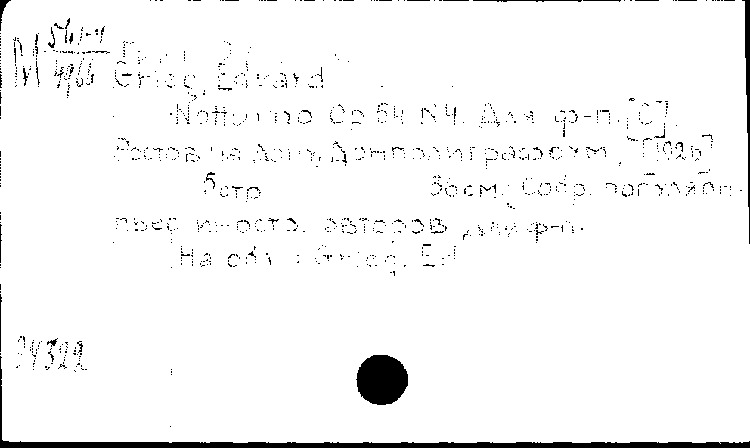 М 561-11/4966
Grieg, Edvard
Notturno Op 54 N4. Для ф-п. [C].
Ростов на Дону, Донполиграфбум, [1926]
5 стр 36 см. Собр. популярн.
пьес иностр. авторов для ф-п.
На обл.: Grieg, Ed
34322